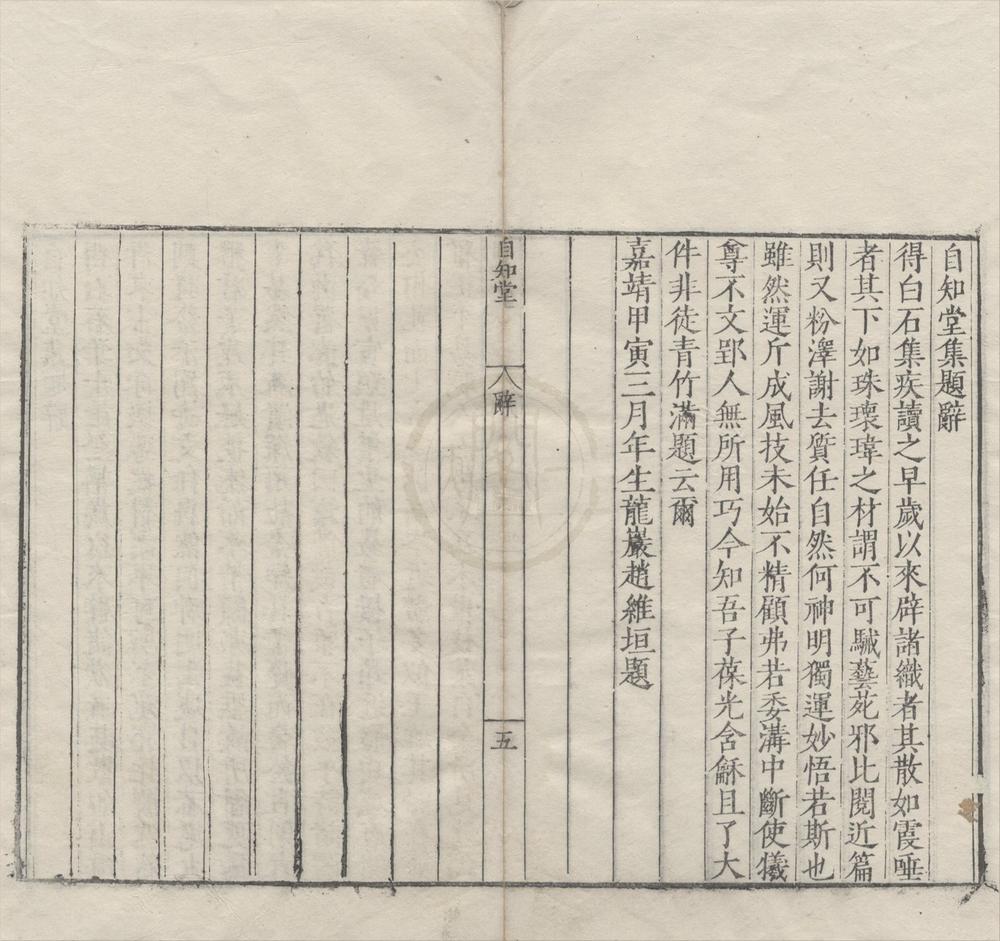 自知堂集題辭
得白石集疾讀之早歲以來辟諸織者其散如霞唾
者其下如珠瓌瑋之材謂不可驖藝苑邪比閱近篇
則又粉澤謝去質任自然何神明獨運妙悟若斯也
雖然運斤成風技未始不精顧弗若委溝中斷使犧
尊不文郢人無所用巧今知吾子葆光含龢且了大
件非徒青竹滿題云爾
嘉靖甲寅三月年生龍巖趙維垣題
自知堂
辭
五